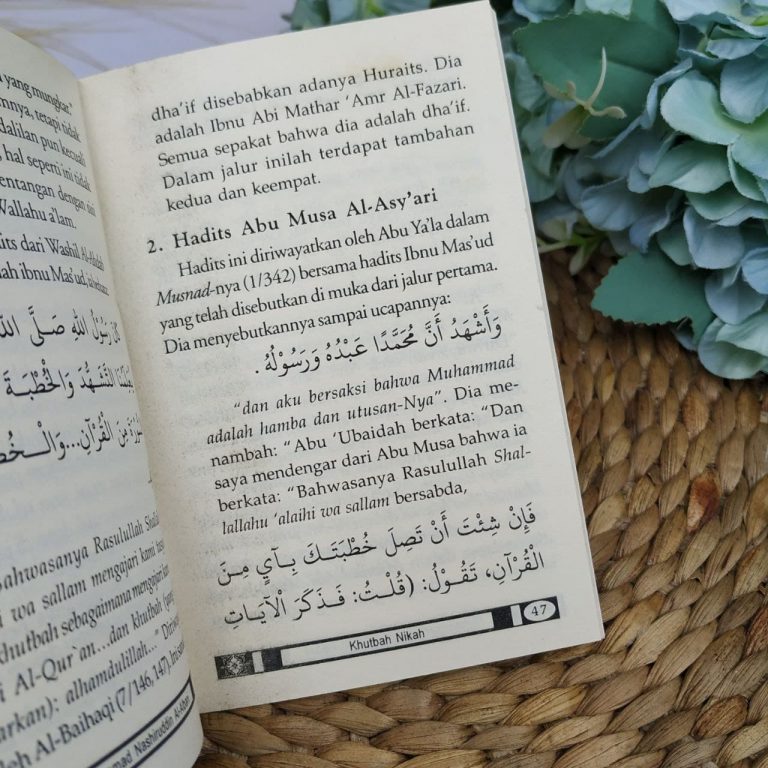 yang mungkar."
tetapi tidak
dalilan pun kecuali
hal seperti ini tidak
dengan sisi
Wallahu a'lam.
dari Washil Al-Ahdab
ibnu Mas'ud, ia
رَسُوْلُ اللَّهِ صَلَّى اللَّهُ
التَّشَهُّدَ وَالْخُطْبَةَ
مِنَ الْقُرْآنِ...وَالْـخُطْ
Bahwasanya Rasulullah
wa sallam mengajari kami
khutbah sebagaimana mengajari
Al-Qur`an...dan khutbah
alhamdulillah..."
Al-Baihaqi (7/146, 147),
Nashiruddin Al-Albani
dha'if disebabkan adanya Huraits. Dia
adalah Ibnu Abi Mathar 'Amr Al-Fazari.
Semua sepakat bahwa dia adalah dha'if.
Dalam jalur inilah terdapat tambahan
kedua dan keempat.
2. Hadits Abu Musa Al-Asy'ari
Hadits ini diriwayatkan oleh Abu Ya'la dalam
Musnad-nya (1/342) bersama hadits Ibnu Mas'ud
yang telah disebutkan di muka dari jalur pertama.
Dia menyebutkannya sampai ucapannya:
وَأَشْهَدُ أَنَّ مُحَمَّدًا عَبْدُهُ وَرَسُوْلُهُ .
"dan aku bersaksi bahwa Muhammad
adalah hamba dan utusan-Nya". Dia me-
nambah: "Abu 'Ubaidah berkata: "Dan
saya mendengar dari Abu Musa bahwa ia
berkata: "Bahwasanya Rasulullah Shal-
lallahu 'alaihi wa sallam bersabda,
فَإِنْ شِئْتَ أَنْ تَصِلَ خُطْبَتَـكَ بِـآيٍ مِـنَ
الْقُرْآنِ، تَقُوْلُ: (قُلْتُ: فَـذَكَرَ الْآيَـاتِ
Khutbah Nikah
47